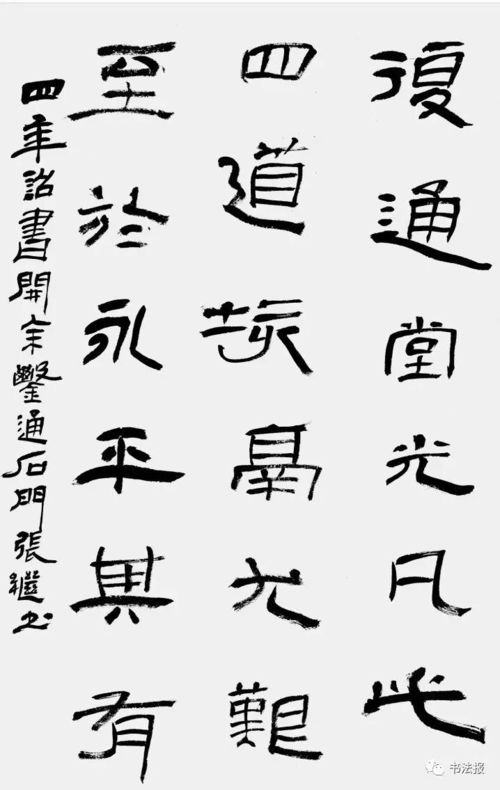 復通堂光凡此
四道垓鬲尤艱
至於永平其有
四年詔書開余鑿通石門張繼書
书法报